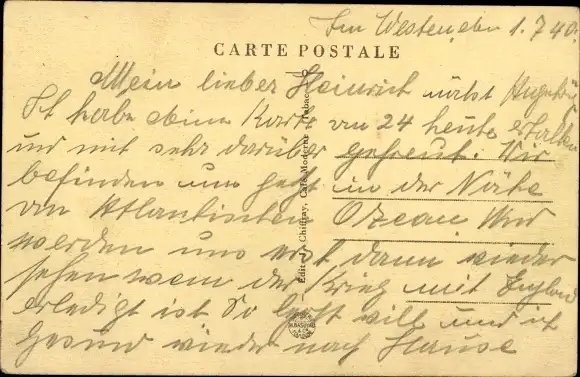 Im Westen den 1.7.40.
CARTE POSTALE
Mein lieber Heinrich nebst Angehörig
Ich habe deine Karte von 24 heute erhalten
und mit sehr darüber gefreut. Wir
befinden uns jetzt in der Nähe
von Atlantischen Ozean Und
werden uns erst dann wieder
sehen wenn der Krieg mit England
erledigt ist So Gott will und ich
Gesund wieder nach Hause
Edit. J. Chiffray, Café Moderne - Tabac